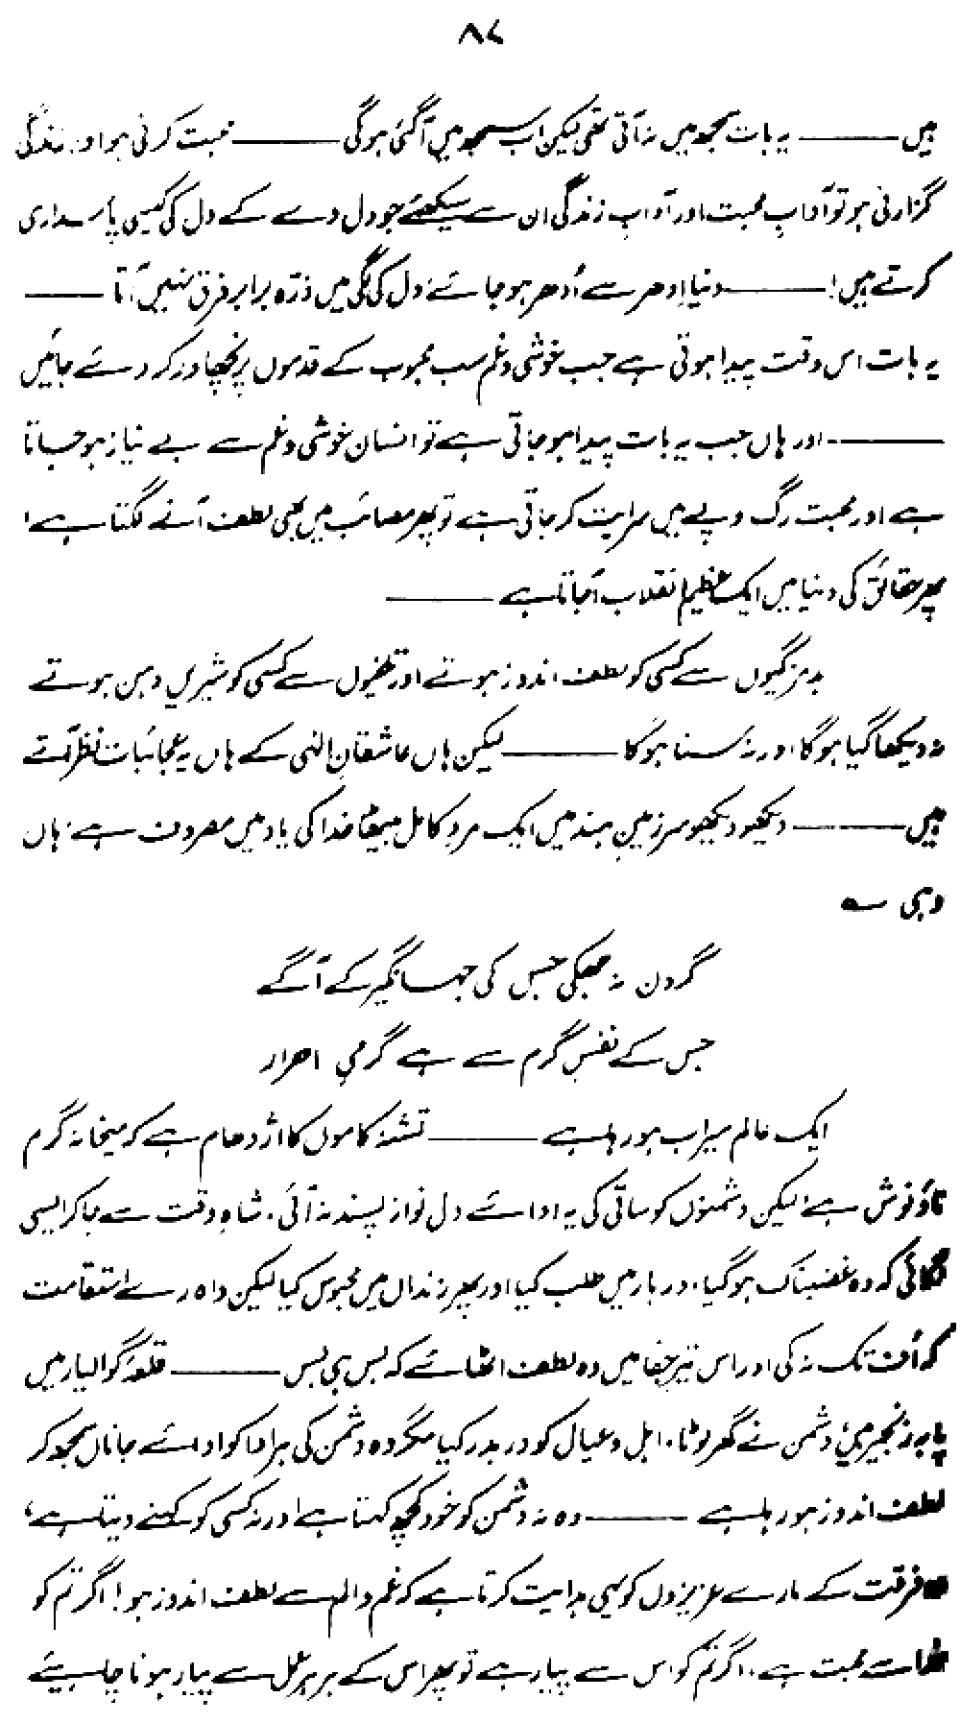 ۸۷
ہیں ——— یہ بات سمجھ میں نہ آتی تھی لیکن اب سمجھ میں آگئی ہوگی ——— محبت کرنی ہو اور زندگی
گزارنی ہو تو آدابِ محبت اور آدابِ زندگی ان سے سیکھئے جو دل دے کے دل کی کیسی پاسداری
کرتے ہیں! ——— دنیا اِدھر سے اُدھر ہو جائے، دل کی لگی میں ذرّہ برابر فرق نہیں آتا ———
یہ بات اس وقت پیدا ہوتی ہے جب خوشی و غم سب محبوب کے قدموں پر نچھاور کر دئے جائیں
——— اور ہاں جب یہ بات پیدا ہو جاتی ہے تو انسان خوشی و غم سے بے نیاز ہو جاتا
ہے اور محبت رگ و پے میں سرایت کر جاتی ہے تو پھر مصائب میں بھی لطف آنے لگتا ہے،
پھر حقائق کی دنیا میں ایک عظیم انقلاب آجاتا ہے ———
بدمزگیوں سے کسی کو لطف اندوز ہوتے اور تلخیوں سے کسی کو شیریں دہن ہوتے
نہ دیکھا گیا ہوگا اور نہ سنا ہوگا ——— لیکن ہاں عاشقانِ الٰہی کے ہاں یہ عجائبات نظر آتے
ہیں ——— دیکھو دیکھو سرزمینِ ہند میں ایک مردِ کامل بیٹھا خدا کی یاد میں مصروف ہے، ہاں
وہی ؎
گردن نہ جھکی جس کی جہانگیر کے آگے
جس کے نفسِ گرم سے ہے گرمیِ احرار
ایک عالم سیراب ہو رہا ہے ——— تشنہ کاموں کا اژدھام ہے کہ میخانہ گرم
ناؤ نوش ہے، لیکن دشمنوں کو ساقی کی یہ ادائے دل نواز پسند نہ آئی، شاہِ وقت سے جا کر ایسی
لگائی کہ وہ غضبناک ہوگیا، دربار میں طلب کیا اور پھر زنداں میں محبوس کیا لیکن واہ رے استقامت
کہ اُف تک نہ کی اور اس تیرِ جفا میں وہ لطف اٹھائے کہ بس ہی بس ——— قلعۂ گوالیار میں
پابہ زنجیر ہے، دشمن نے گھر لوٹا، اہل و عیال کو در بدر کیا مگر وہ دشمن کی ہر ادا کو ادائے جاناں سمجھ کر
لطف اندوز ہو رہا ہے ——— وہ نہ دشمن کو خود کچھ کہتا ہے اور نہ کسی کو کہنے دیتا ہے،
فرقت کے مارے عزیزوں کو یہی ہدایت کرتا ہے کہ غم و الم سے لطف اندوز ہو! اگر تم کو
سے محبت ہے، اگر تم کو اس سے پیار ہے تو پھر اس کے ہر ہر عمل سے پیار ہونا چاہیئے